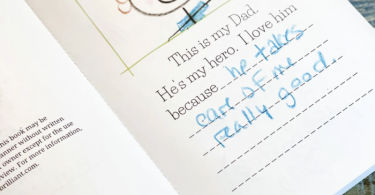 This is my Dad.
He's my hero. I love him
because he takes
care of me
really good
this book may be
manner without written
owner except for the use
view. For more information,
brilliant.com.